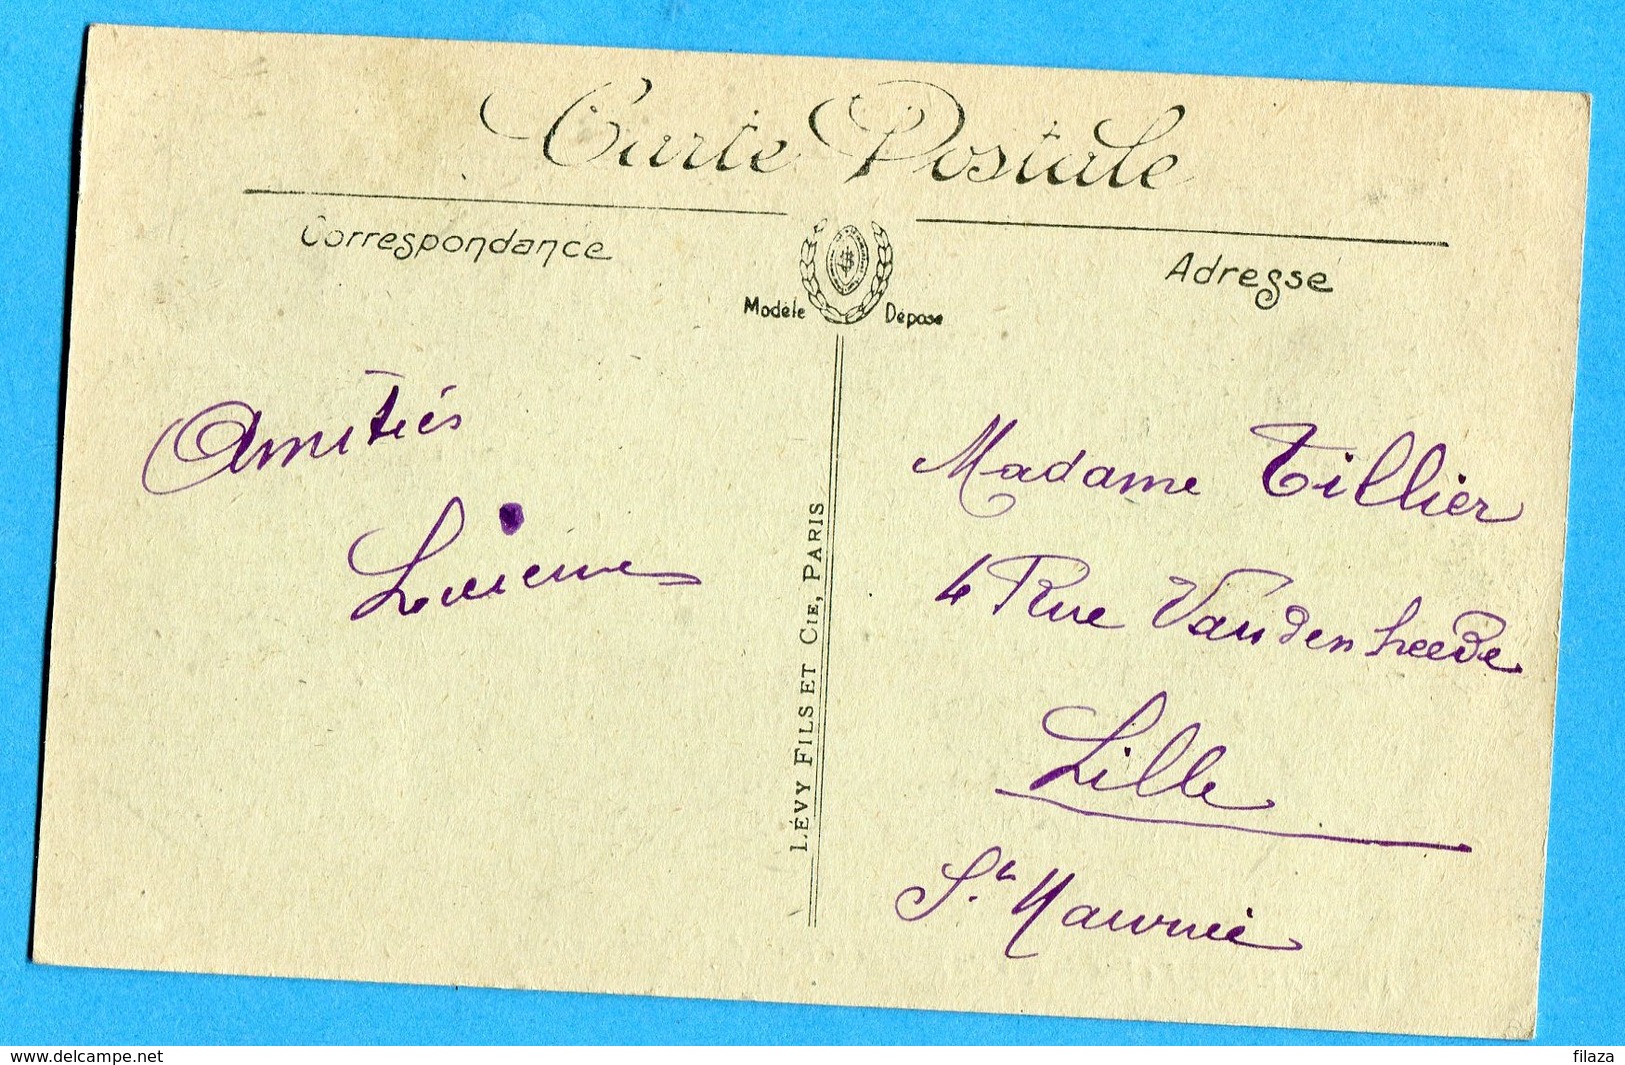 Carte Postale
Correspondance
Adresse
Modèle Déposé
Amitiés
Lucienne
LÉVY FILS ET CIE, PARIS
Madame Tillier
4 Rue Vandenheede
Lille
St Maurice
www.delcampe.net
filaza